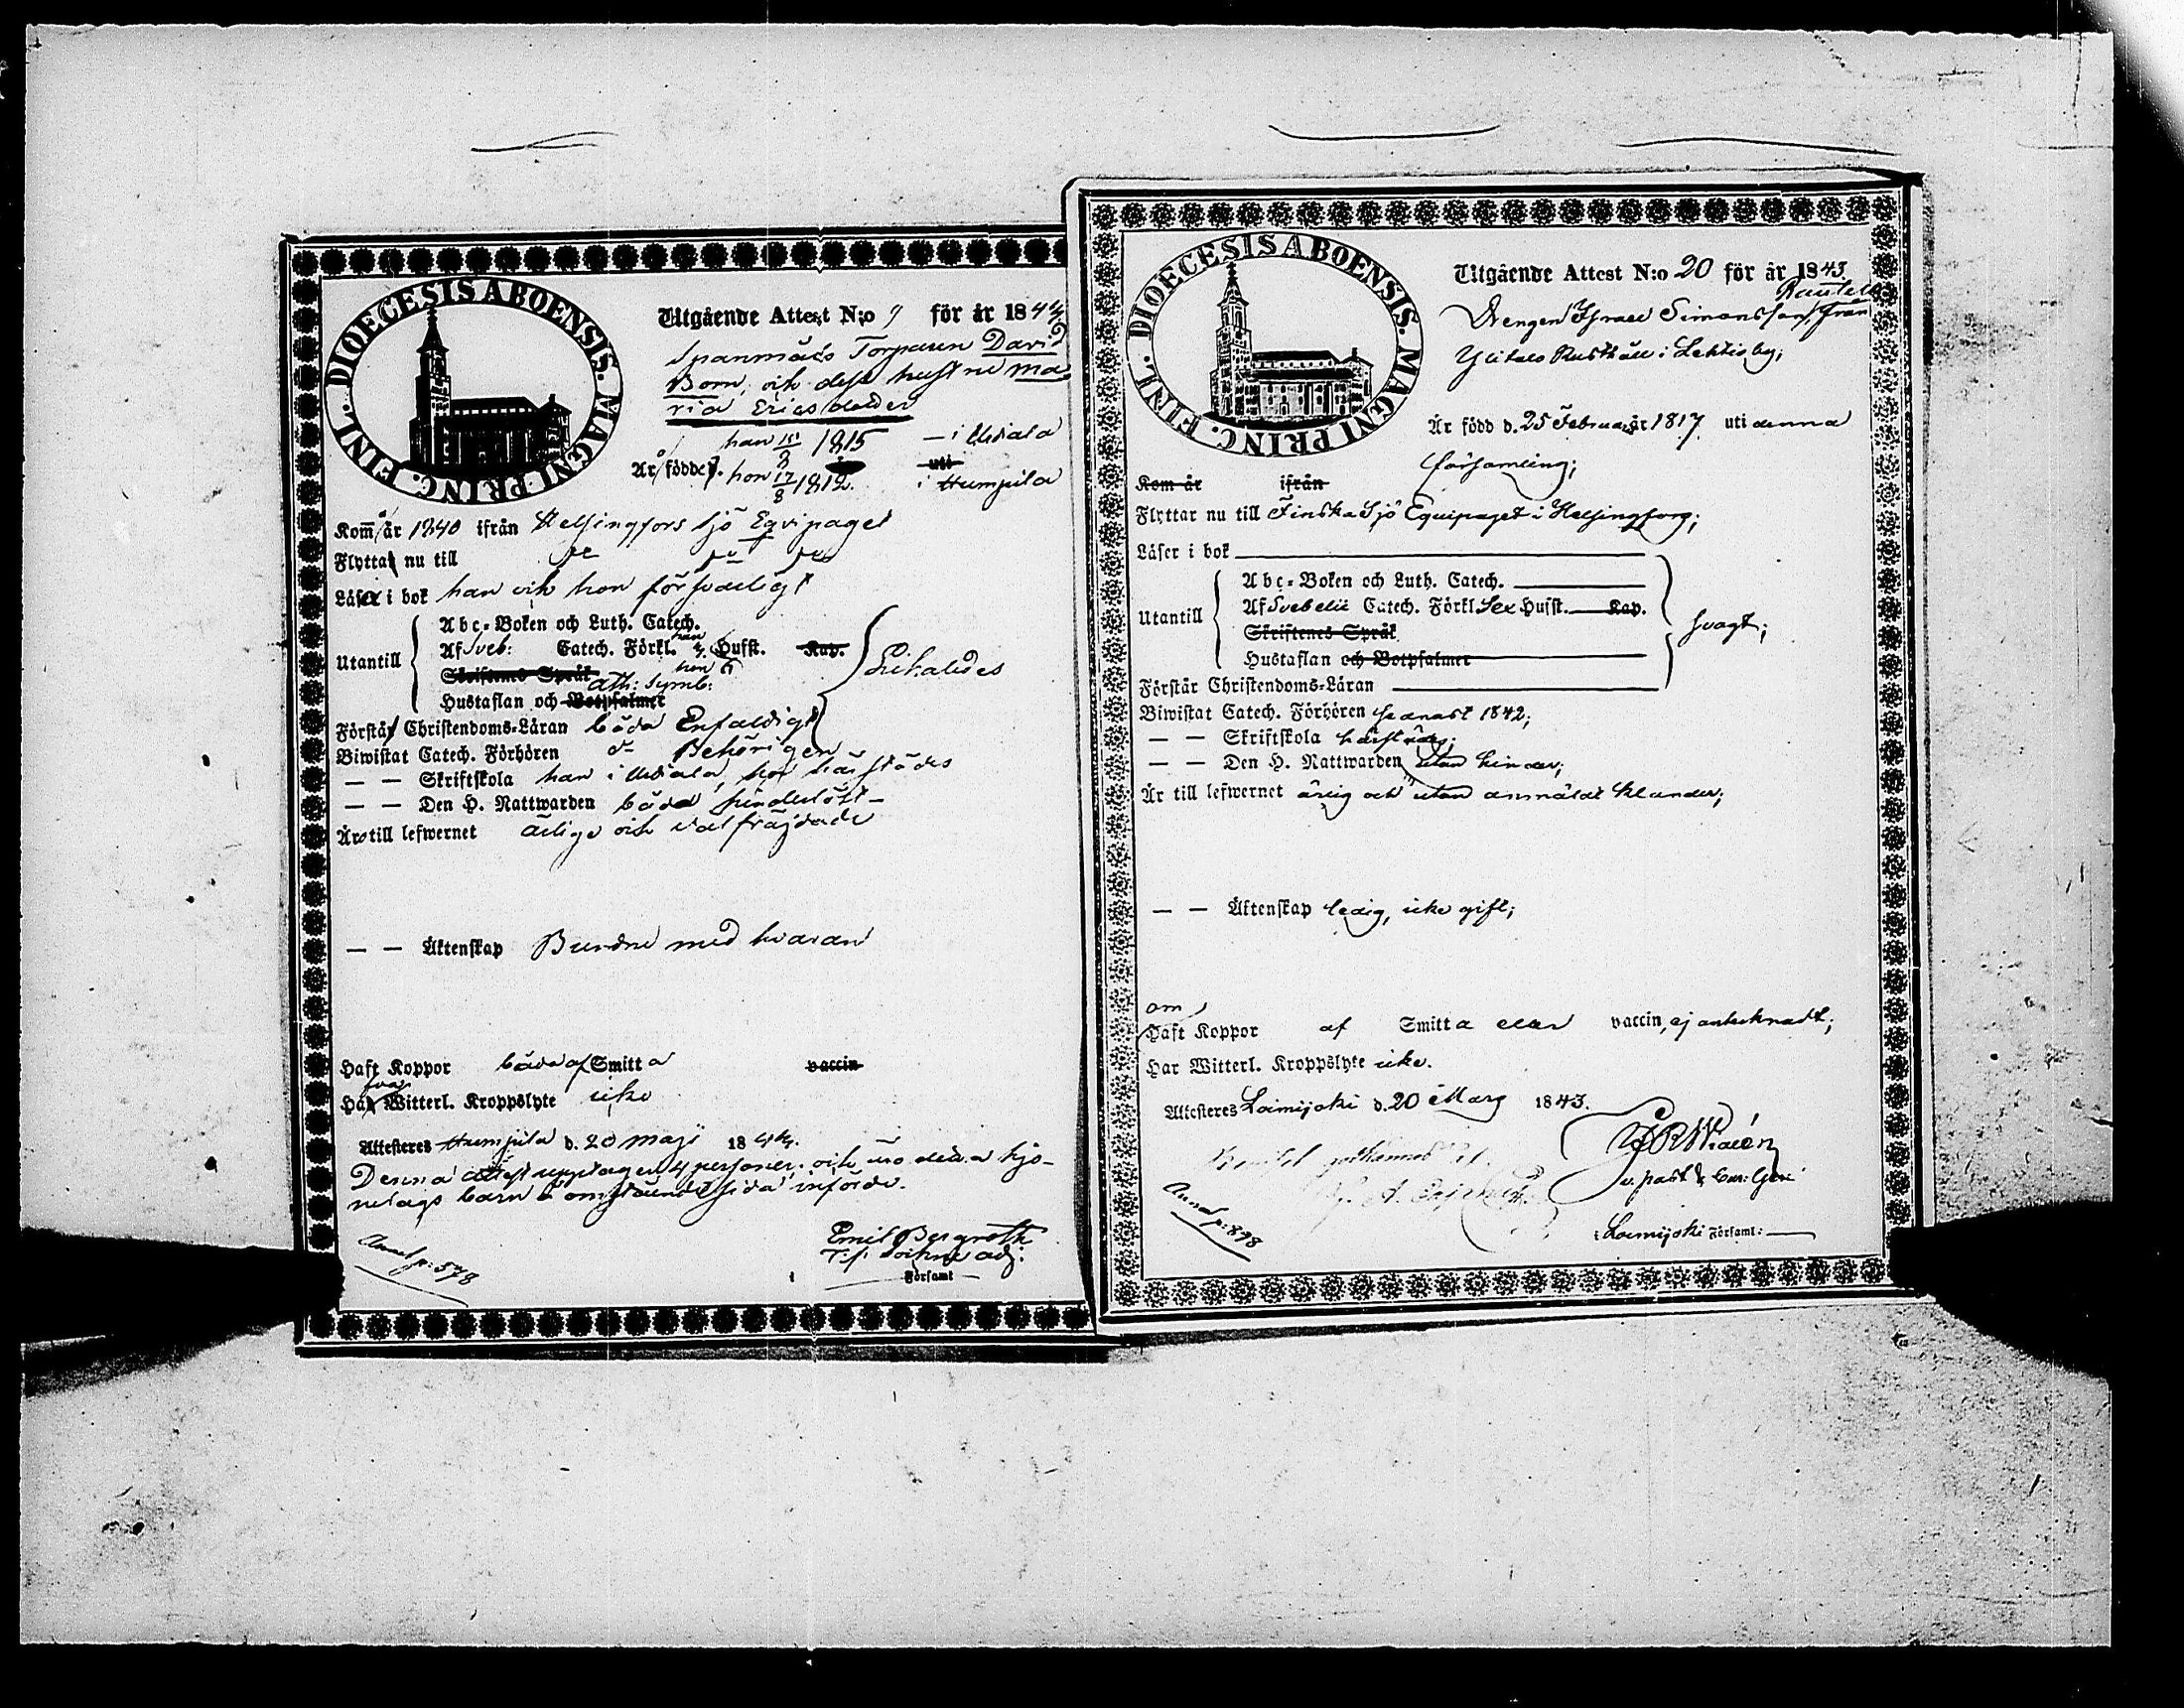 DIOECESIS ABOENSIS. MAGNI PRINC. FINL.
Utgående Attest N:o 9 för år 1844
Spanmäls Torparen David
Born, och dess hustru Ma
ria Ericsdotter
han 15/8 1815 — i Urdiala
Är födde d. hon 17/8 1812. uti i Humpila
Komm år 1840 ifrån Helsingfors Sjö Eqvipaget
Flytta nu till
Läsa i bok han och hon försvarligt
Abc-Boken och Luth. Catech.
Utantill Af Sveb: Catech. Förkl. han 4. Husst. Kap.
Skriftenes Språk hon 6
Ath: Symb:
Hustaflan och Botpsalmer
Likaledes
Förstå Christendoms-Läran båda Enfaldigt
Biwistat Catech. Förhören d:o Behörigen
— — Skriftskola han i Urdiala, hon härstädes
— — Den H. Nattwarden båda hinderlöst
Äro till lefwernet ärlige och välfräjdade
— — Äktenskap Bundne med hvaran
Haft Koppor båda af Smitta vaccin
Har Witterl. Kroppslyte icke
Attesteres Humpila d. 20 Maji 1844.
Denna attest upptager 4 personer, och äro dessa hjo-
nelags barn å omstående sida införde.
Emil Bergroth
Annot p: 578
Församl
DIOECESIS ABOENSIS. MAGNI PRINC. FINL.
Utgående Attest N:o 20 för år 1843.
Rautell
Drengen Israel Simonsson, från
Ylitalo Rusthåll i Lehtis by;
Är född d. 25 Februarii år 1817 uti denna
församling;
Kom år ifrån
Flyttar nu till Finska Sjö Equipaget i Helsingfors;
Läser i bok
Abc-Boken och Luth. Catech.
Utantill Af Svebelii Catech. Förkl. Sex Husst. Kap.
Skriftenes Språk
Hustaflan och Botpsalmer
svagt;
Förstår Christendoms-Läran
Biwistat Catech. Förhören senast 1842;
— — Skriftskola härstädes;
— — Den H. Nattwarden utan hinder;
Är till lefwernet ärlig och utan anmäldt klander;
— — Äktenskap ledig, icke gift;
om
Haft Koppor af Smitta eller vaccin, ej antecknadt;
Har Witterl. Kroppslyte icke.
Attesteres Loimijoki d. 20 Mars 1843.
v. past.
Annot p: 898
i Loimijoki Församl: